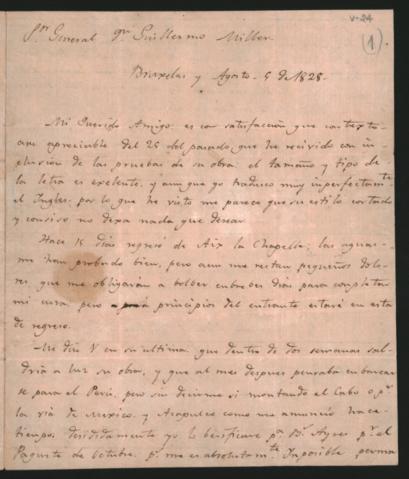 V-24
(1)
Sor. General Dn. Guillermo Miller
Bruxelas y Agosto - 5 de 1828.
Mi Querido Amigo, es con satisfacción que contexto
a su apreciable del 25 del pasado, que he recivido con in-
clusion de las pruebas de su obra, el tamaño y tipo de
la letra es exelente, y aunque yo traduco muy imperfectamte.
el Ingles, por lo que he visto me parece que su estilo cortado
y conciso no dexa nada que desear.
Hace 15 dias regresé de Aix la Chapelle: las aguas
me han probado bien, pero aun me restan pequeños dolo-
res, que me obligaran a bolber dias para completar
mi cura, pero a principios del entrante estaré en esta
de regreso.
Me dice V en su ultima, que dentro de dos semanas sal-
dria a luz su obra, y que al mes despues pensaba embarcar
se para el Perú, pero sin decirme si montando el Cabo o pr.
la via de Mexico y Acapulco como me anunció hace
tiempo; decididamente yo lo berificare pa. Bs. Ayres pr. el
Paquete de Octubre, ps. me es absolutamte. Imposible perma